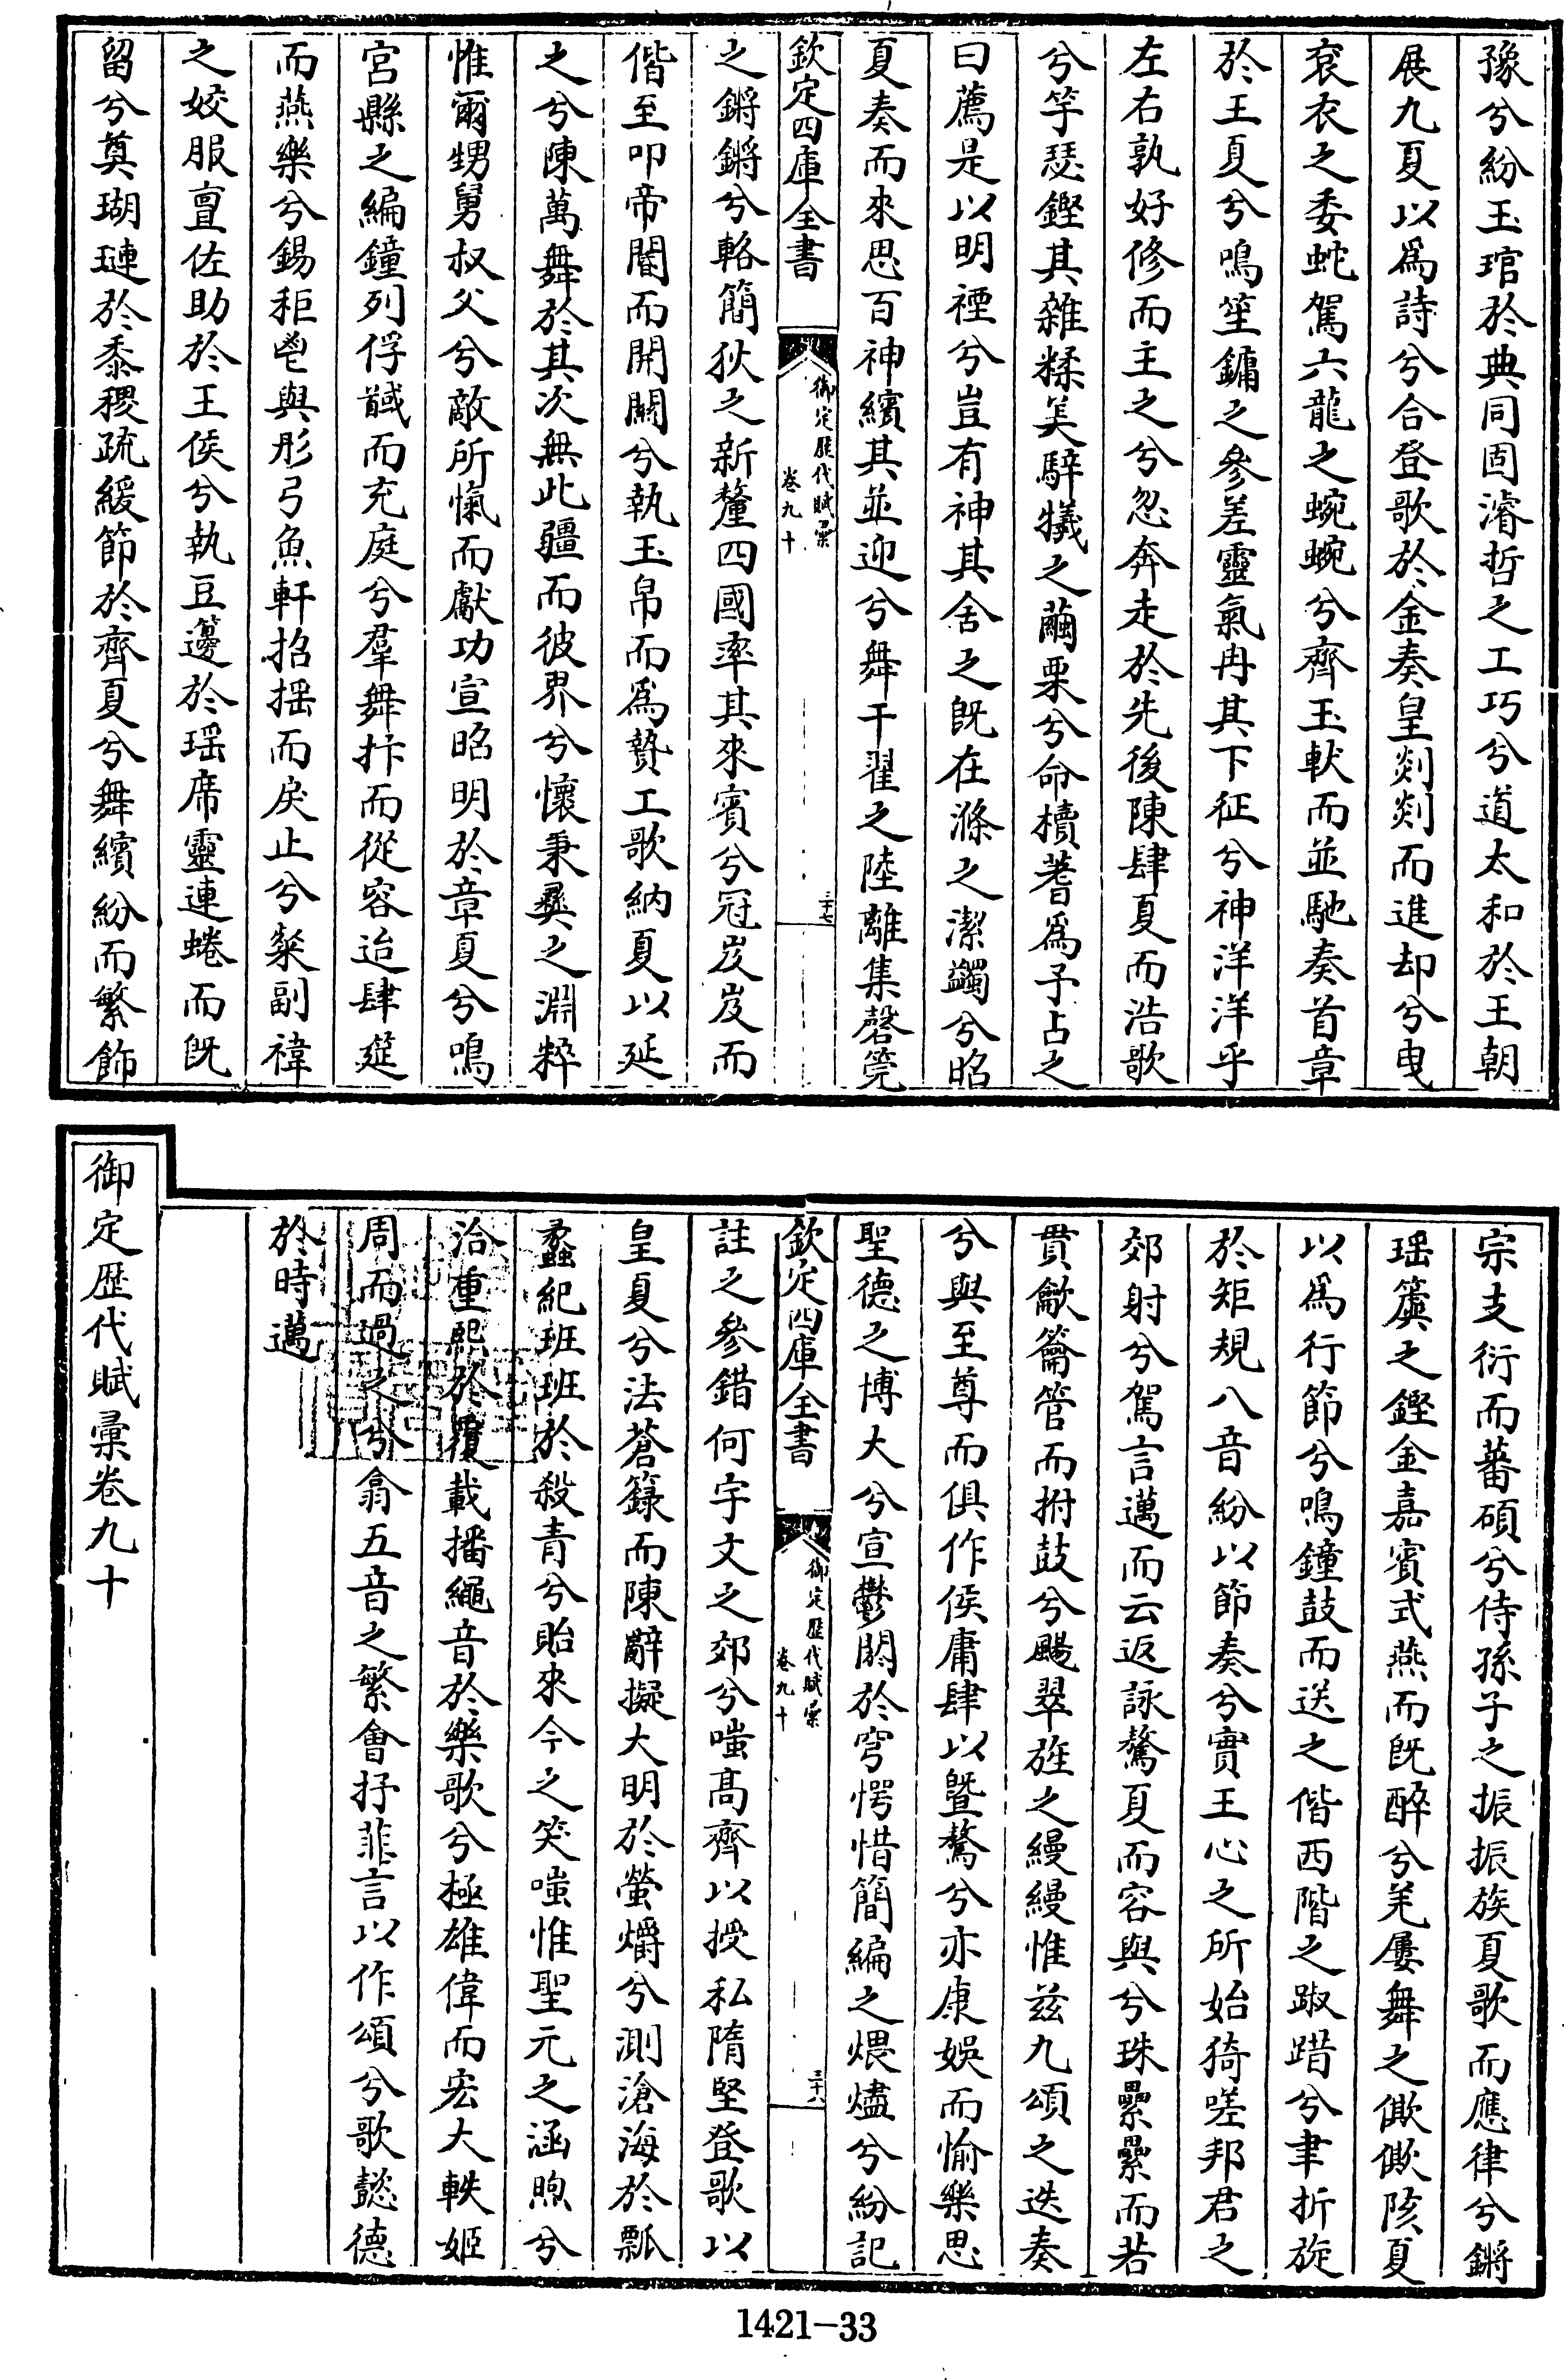 豫兮紛玉琯於典同固濬哲之工巧兮道太和於王朝
展九夏以為詩兮合登歌於金奏皇剡剡而進却兮曳
衮衣之委蛇駕六龍之蜿蜿兮齊玉軑而並馳奏首章
於王夏兮鳴笙鏞之參差靈氣冉其下征兮神洋洋乎
左右孰好修而主之兮忽奔走於先後陳肆夏而浩歌
兮竽瑟鏗其雜糅羙騂犧之繭栗兮命櫝蓍為予占之
曰薦是以明禋兮豈有神其舍之既在滌之潔蠲兮昭
夏奏而來思百神繽其並迎兮舞干翟之陸離集磬筦
欽定四庫全書
御定歷代賦彙
卷九十
三十七
之鏘鏘兮輅簡狄之新釐四國率其來賓兮冠岌岌而
偕至叩帝閽而開關兮執玉帛而為贄工歌納夏以延
之兮陳萬舞於其次無此疆而彼界兮懷秉彞之淵粹
惟爾甥舅叔父兮敵所愾而獻功宣昭明於章夏兮鳴
宮縣之編鐘列俘馘而充庭兮羣舞抃而從容迨肆筵
而燕樂兮錫秬鬯與彤弓魚軒招搖而戾止兮粲副褘
之姣服亶佐助於王侯兮執豆籩於瑶席靈連蜷而既
留兮奠瑚璉於黍稷疏緩節於齊夏兮舞繽紛而繁飾
宗支衍而蕃碩兮侍孫子之振振族夏歌而應律兮鏘
瑶簴之鏗金嘉賓式燕而既醉兮羌屢舞之僛僛陔夏
以為行節兮鳴鐘鼓而送之偕西階之踧踖兮聿折旋
於矩規八音紛以節奏兮實王心之所始猗嗟邦君之
郊射兮駕言邁而云返詠驁夏而容與兮珠纍纍而若
貫龡籥管而拊鼓兮颺翠旌之縵縵惟兹九頌之迭奏
兮與至尊而俱作侯庸肆以曁驁兮亦康娛而愉樂思
聖德之博大兮宣鬱閼於穹愕惜簡編之煨燼兮紛記
欽定四庫全書
御定歷代賦彙
卷九十
三十八
註之參錯何宇文之郊兮嗤髙齊以授私隋堅登歌以
皇夏兮法蒼籙而陳辭擬大明於螢爝兮測滄海於瓢
蠡紀班班於殺青兮貽來今之笑嗤惟聖元之涵煦兮
洽重熙於覆載播繩音於樂歌兮極雄偉而宏大軼姬
周而過之兮翕五音之繁會抒菲言以作頌兮歌懿德
於時邁
御定歷代賦彙卷九十
1421-33